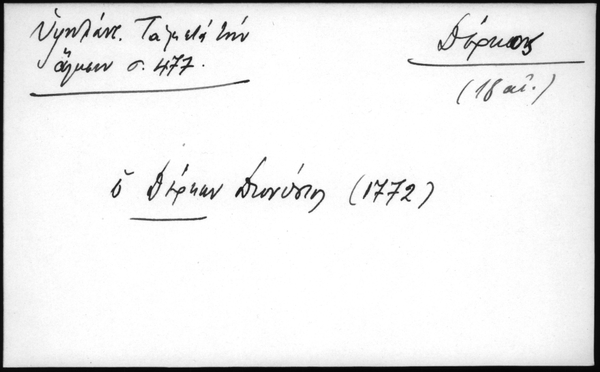 Ὑψηλάντ. Τὰ μετὰ τὴν
ἅλωσιν σ. 477.
Δέρκος
(18 αἰ.)
ὁ Δέρκων Διονύσιος (1772)